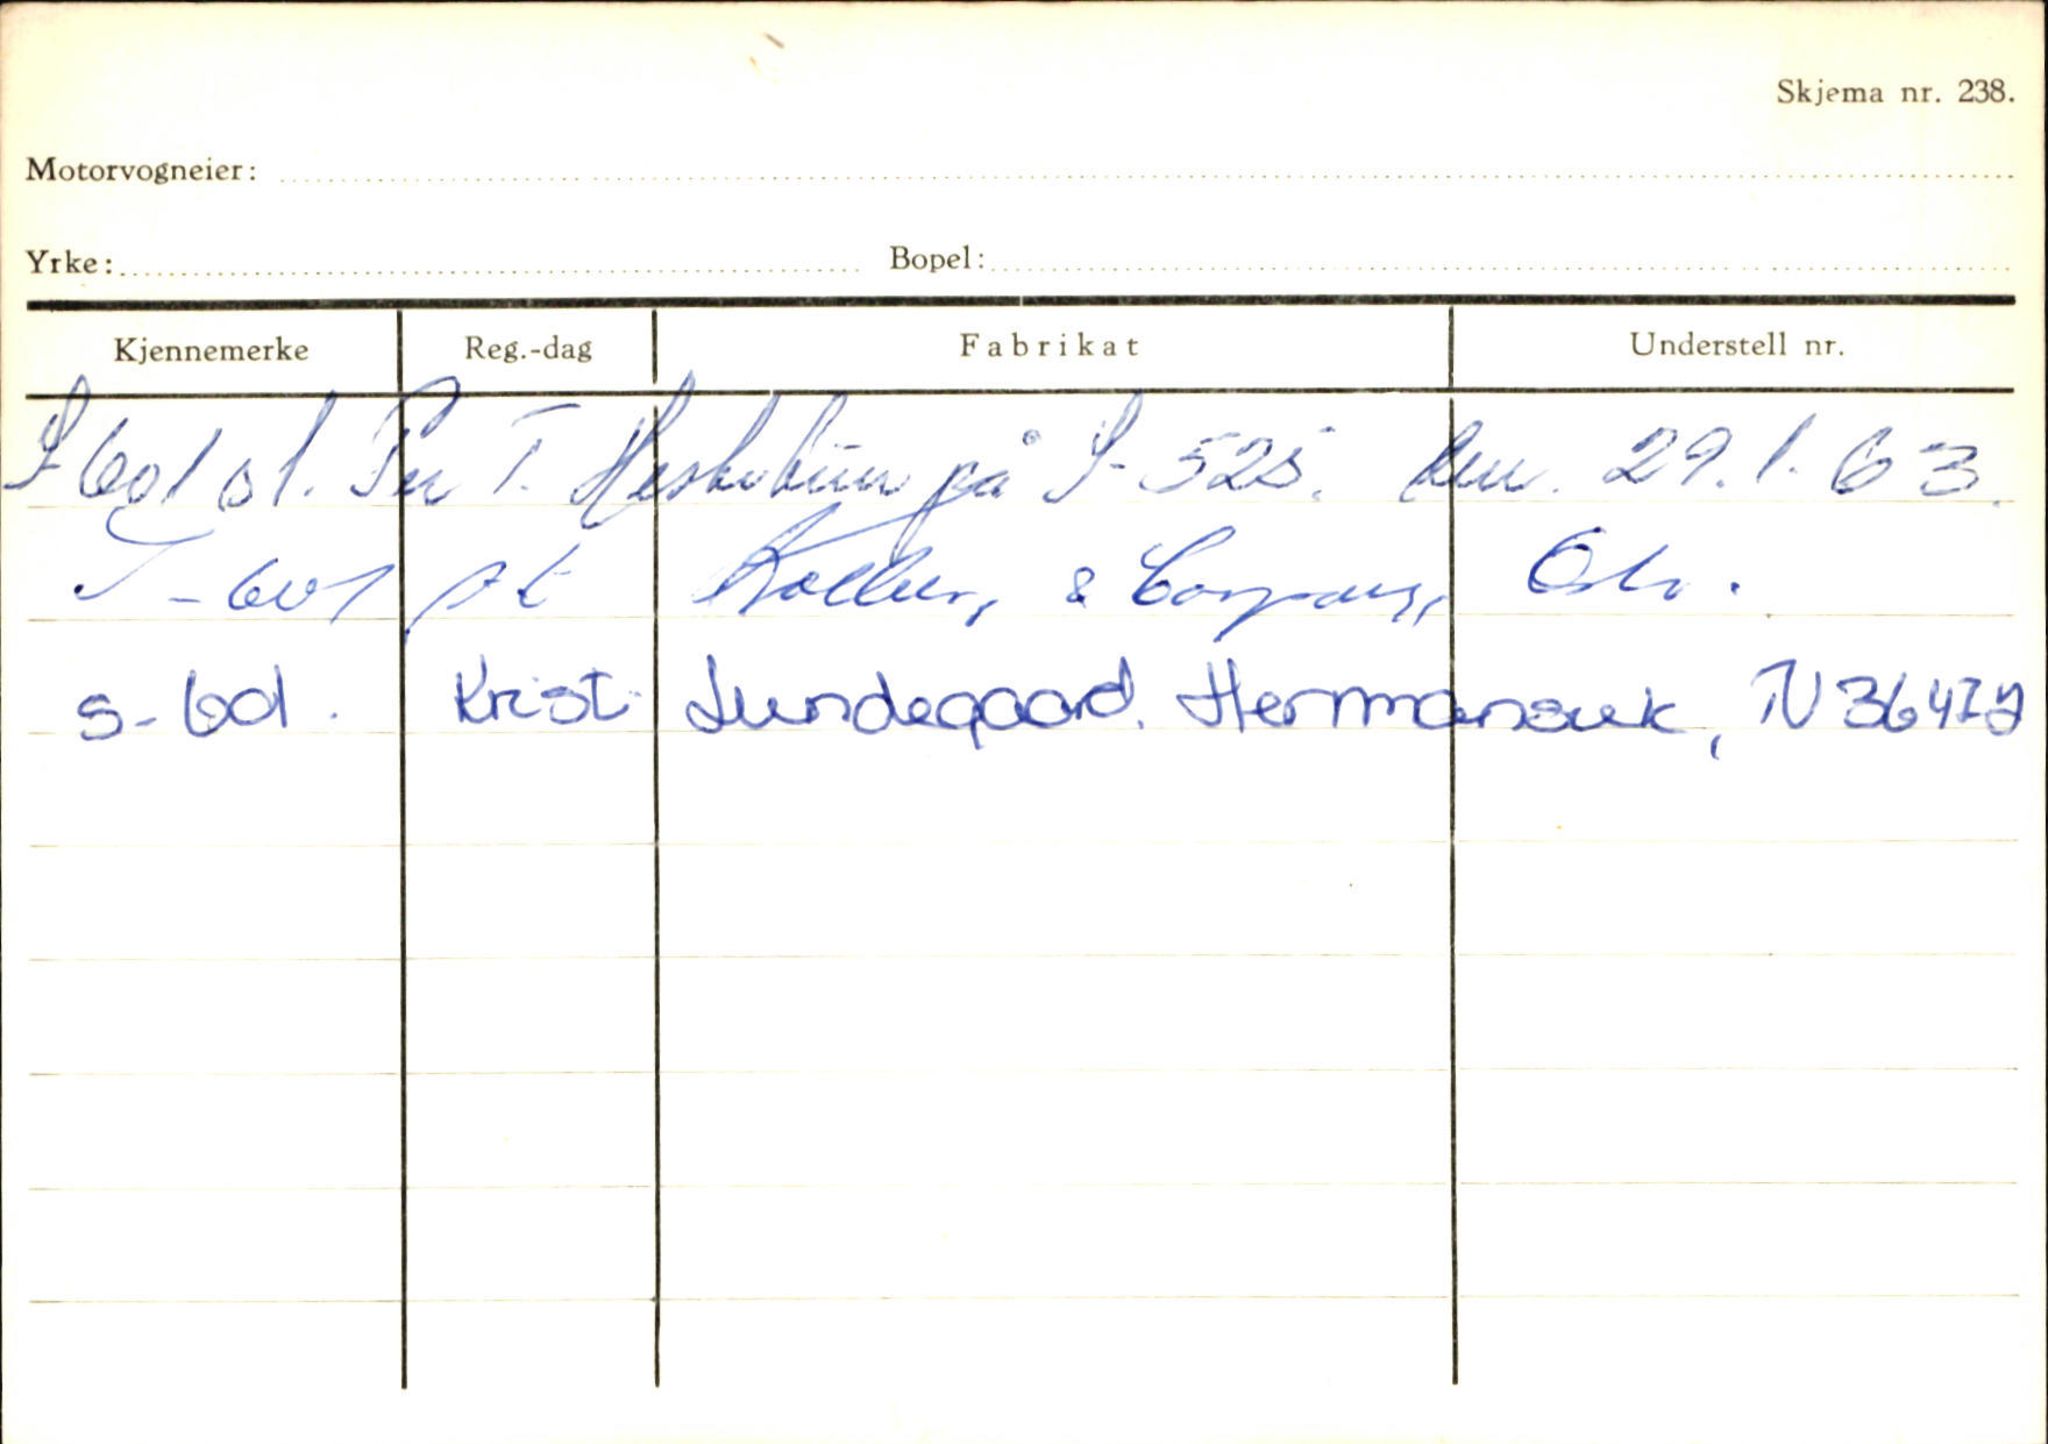 Skjema nr. 238.
Motorvogneier:
Yrke: Bopel:
Kjennemerke Reg.-dag Fabrikat Understell nr.
S 601 st. Per T. på S-525. den. 29.1.63.
S-601 pt & Company, Oslo.
S-601. Kristi Lundegaard. Hermansverk, N 36472